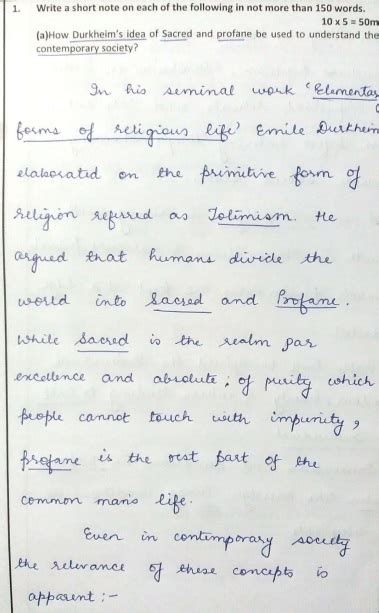 1. Write a short note on each of the following in not more than 150 words.
10 x 5 = 50m
(a)How Durkheim's idea of Sacred and profane be used to understand the
contemporary society?
In his seminal work 'Elementary
forms of religious life' Emile Durkheim
elaborated on the primitive form of
religion referred as Totimism. He
argued that humans divide the
world into Sacred and Profane.
While Sacred is the realm par
excellence and absolute, of purity which
people cannot touch with impunity,
profane is the rest part of the
common man's life.
Even in contemporary society
the relevance of these concepts is
apparent :-